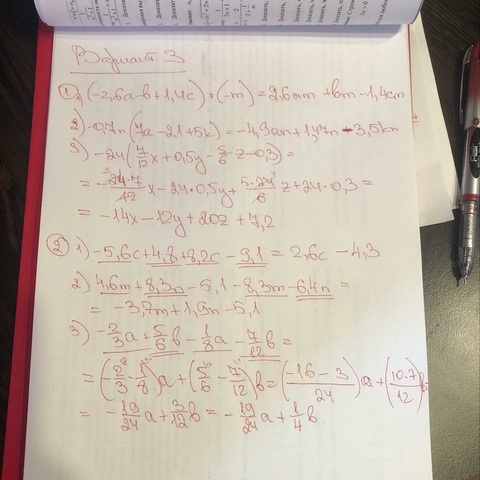 Вариант 3
① 1) (-2,6a-b+1,4c)·(-m)=2,6am+bm-1,4cm
2) -0,7n(7a-2,1+5k)=-4,9an+1,47n-3,5kn
3) -24(7/12x+0,5y-5/6z-0,3)=
= -24·7/12x-24·0,5y+5·24/6z+24·0,3=
= -14x-12y+20z+7,2
② 1) -5,6c+4,8+8,2c-9,1=2,6c-4,3
2) 4,6m+8,3n-5,1-8,3m-6,4n=
= -3,7m+1,9n-5,1
3) -2/3a+5/6b-1/8a-7/12b=
=(-2/3-1/8)a+(5/6-7/12)b=(-16-3/24)a+(10-7/12)b=
= -19/24a+3/12b=-19/24a+1/4b.